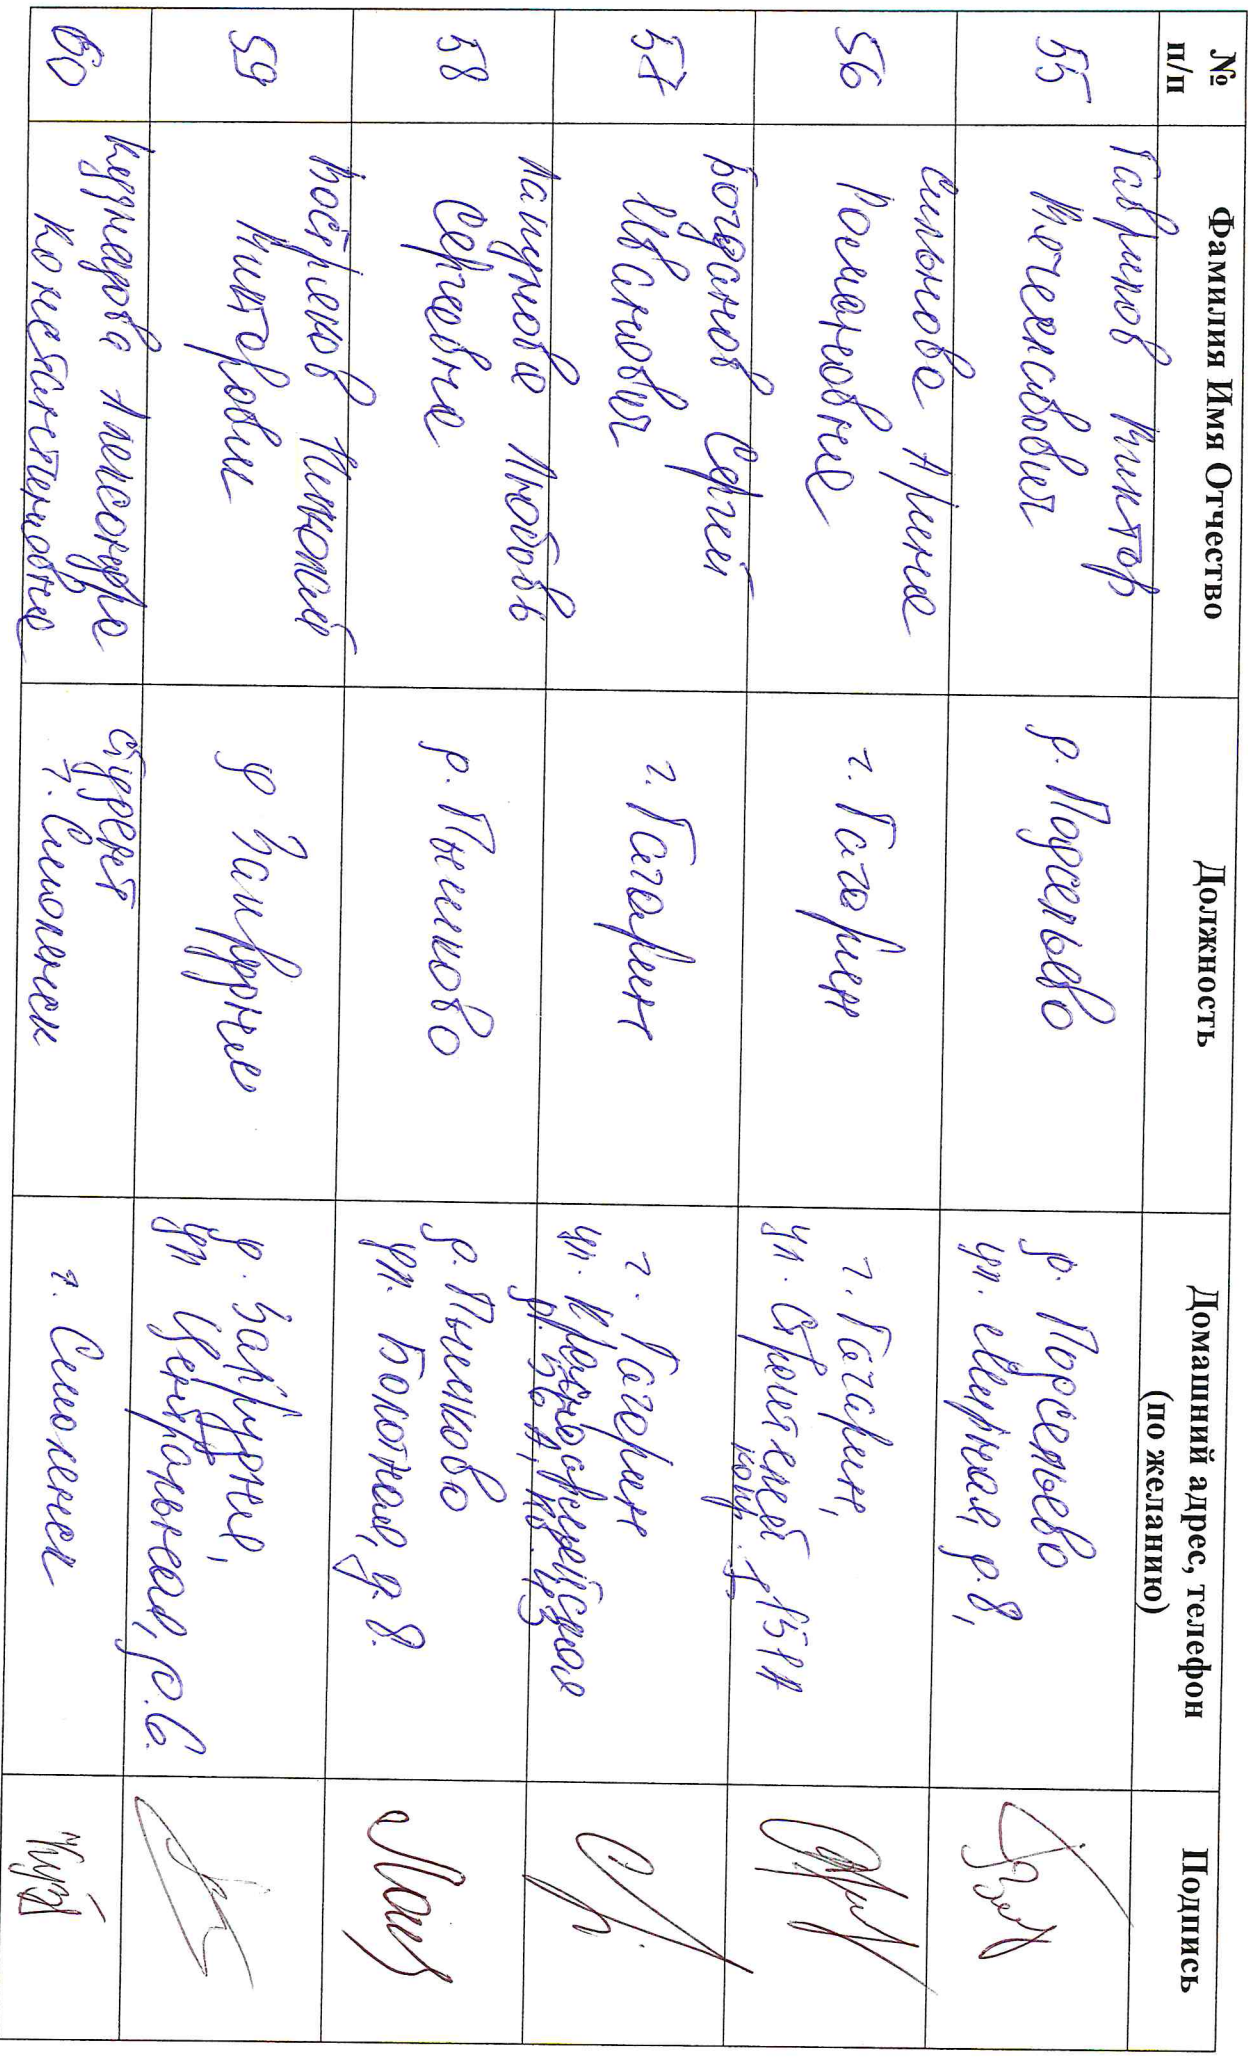 № п/п
Фамилия Имя Отчество
Должность
Домашний адрес, телефон
(по желанию)
Подпись
55
Гаврилов Виктор
Вячеславович
д. Подсельево
д. Подсельево
ул. Мирная, д. 8,
56
Сильнова Арина
Романовна
г. Гагарин
г. Гагарин,
ул. Строителей, 157А
кор. 1
57
Богданов Сергей
Иванович
г. Гагарин
г. Гагарин
ул. Красноармейская
д. 56А, кв. 43
58
Лагунова Любовь
Сергеевна
д. Пышково
д. Пышково
ул. Болотная, д. 8.
59
Востряков Николай
Викторович
д Запрудье
д. Запрудье,
ул Центральная, д. 6.
60
Александра
Константиновна
студент
г. Смоленск
г. Смоленск